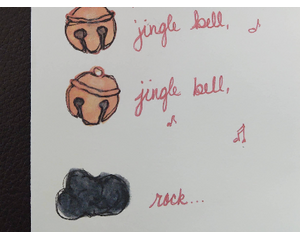 jingle bell,
jingle bell,
rock...